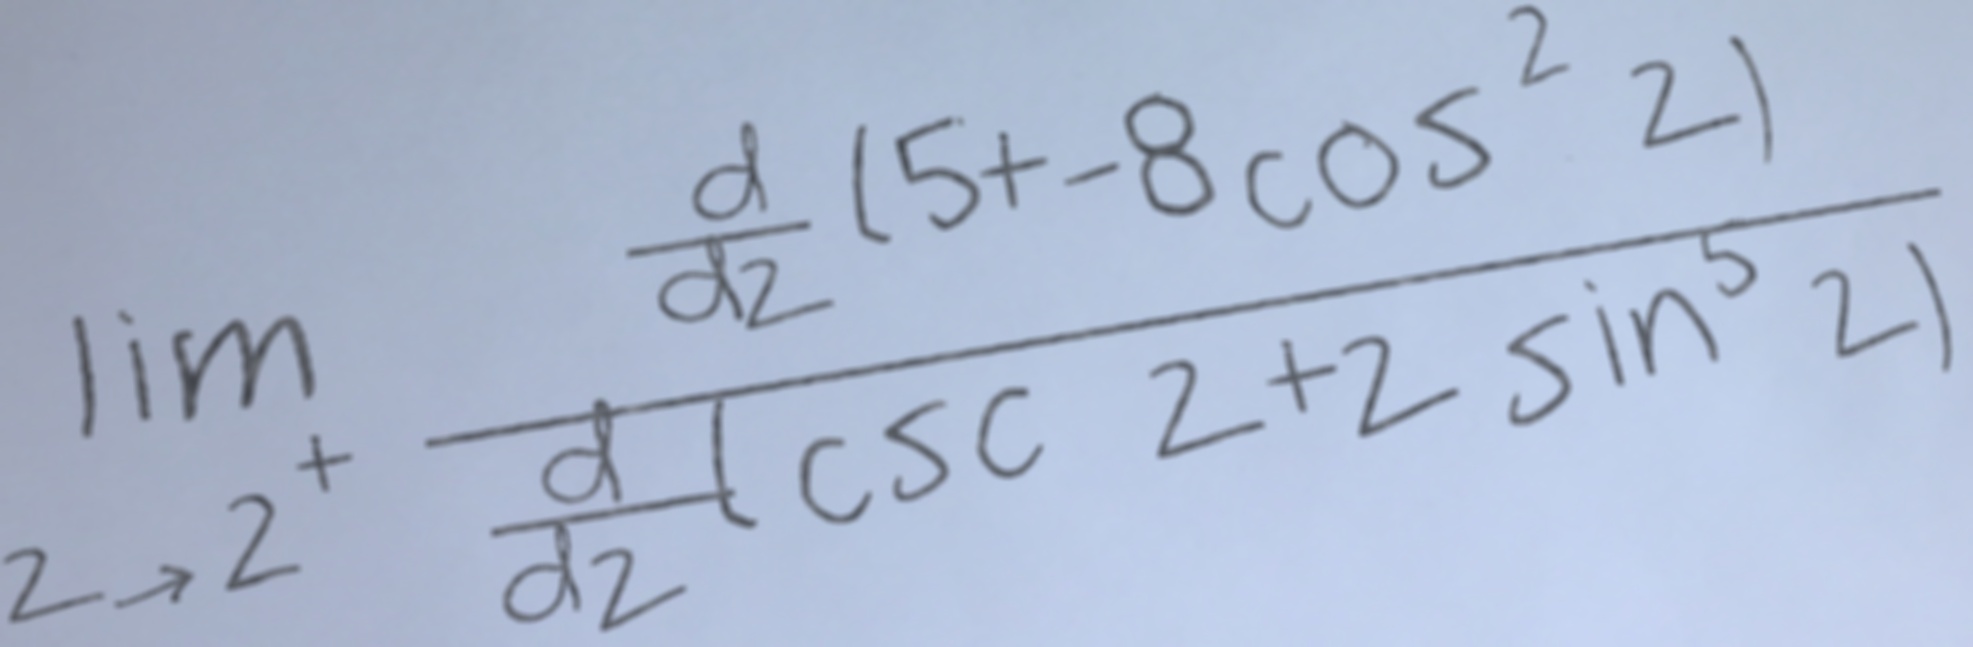 \lim_{z \to 2^+} \frac{\frac{d}{dz}(5+-8\cos^2 z)}{\frac{d}{dz}(\csc z+2\sin^5 z)}